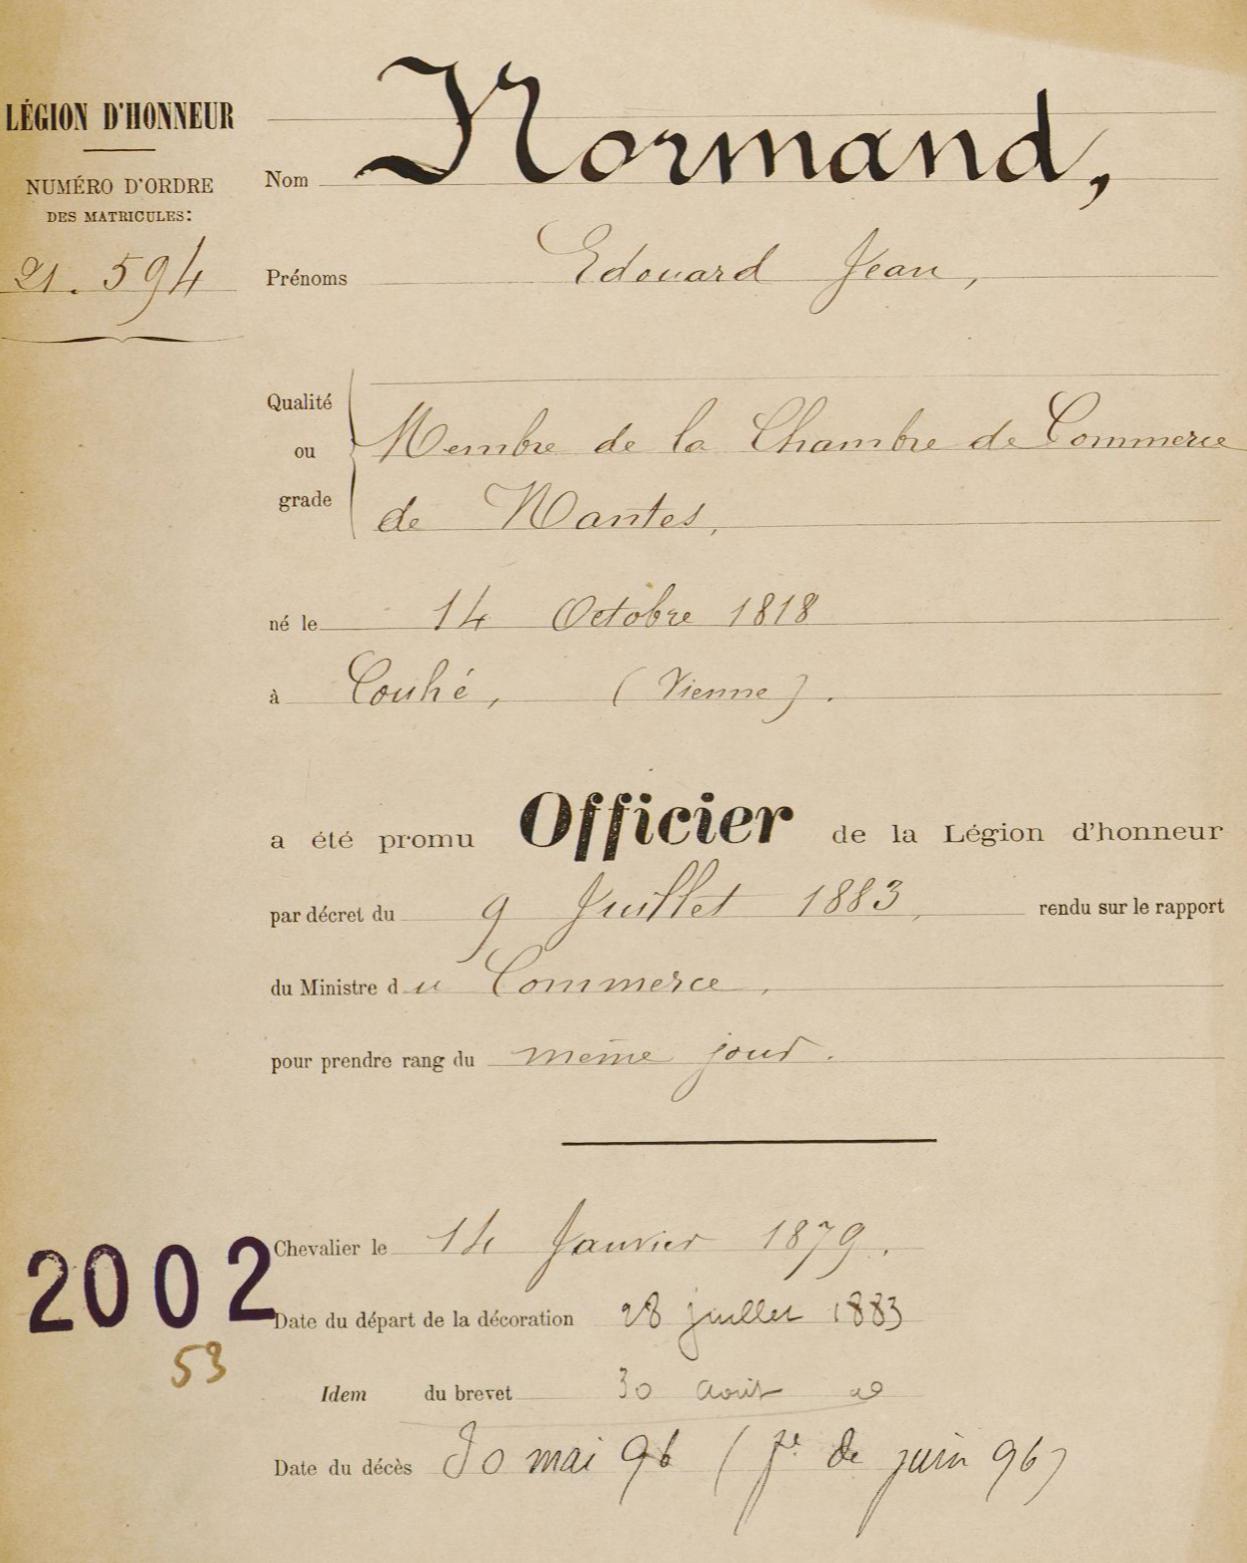 LÉGION D'HONNEUR
NUMÉRO D'ORDRE
DES MATRICULES:
21.594
Nom Normand,
Prénoms Edouard Jean,
Qualité
ou
grade
Membre de la Chambre de Commerce
de Nantes,
né le 14 Octobre 1818
à Couhé, (Vienne).
a été promu Officier de la Légion d'honneur
par décret du 9 Juillet 1883, rendu sur le rapport
du Ministre du Commerce,
pour prendre rang du même jour.
Chevalier le 14 Janvier 1879.
2002
53
Date du départ de la décoration 28 juillet 1883
Idem du brevet 30 Août do
Date du décès 30 mai 96 (fe de juin 96)